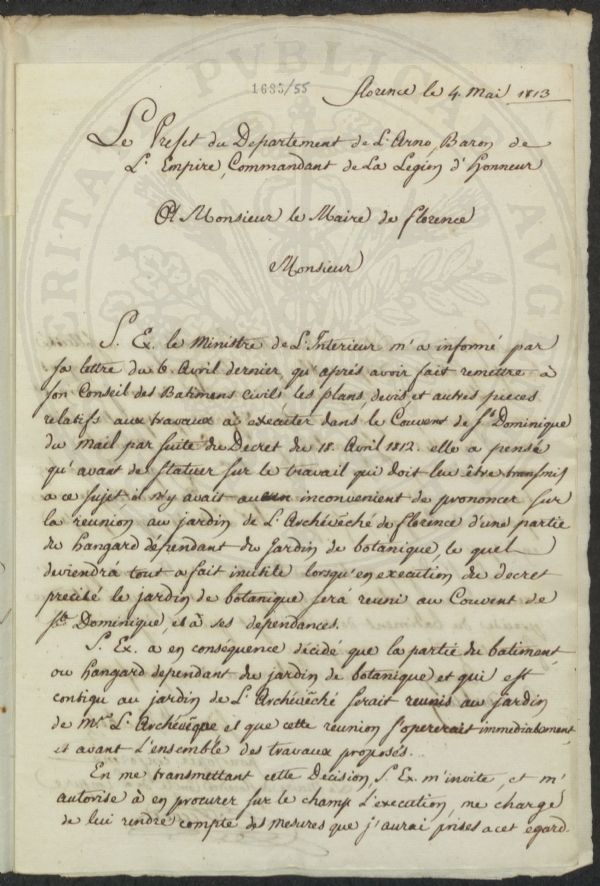 1685/55
florence le 4. Mai 1813
Le Prefet du Departement de L'Arno, Baron de
L'Empire, Commandant de La Legion d'Honneur
A Monsieur le Maire de florence
Monsieur
S. Ex. le Ministre de L'Interieur m'a informé par
sa lettre du 6. Avril dernier, qu'après avoir fait remettre à
son Conseil des Batimens civils les plans, devis et autres pieces
relatifs aux travaux à executer dans le Couvent de St. Dominique
du Mail par suite du Decret du 18. Avril 1812. elle a pensé
qu'avant de statuer sur le travail qui doit leu être transmis
a ce sujet il n'y avait aucun inconvenient de prononcer sur
la reunion au jardin de L'Archévêché de florence d'une partie
du hangard dépendant du Jardin de botanique, le quel
deviendrá tout a fait inutile lorsqu'en execution du decret
precité le jardin de botanique serà reuni au Couvent de
St. Dominique, et à ses dependances.
S. Ex. a en conséquence décidé que la partie du batiment
ou hangard dependant du jardin de botanique et qui est
contigu au jardin de L'Archévêché serait reunis au jardin
de Mr. L'Archévêque et que cette reunion s'opererait immediatement
et avant l'ensemble des travaux proposés.
En me transmettant cette Decision S. Ex. m'invite, et m'
autorise à en procurer sur le champ l'execution, me charge
de lui rendre compte des mesures que j'aurai prises a cet egard.
PVBLICAE